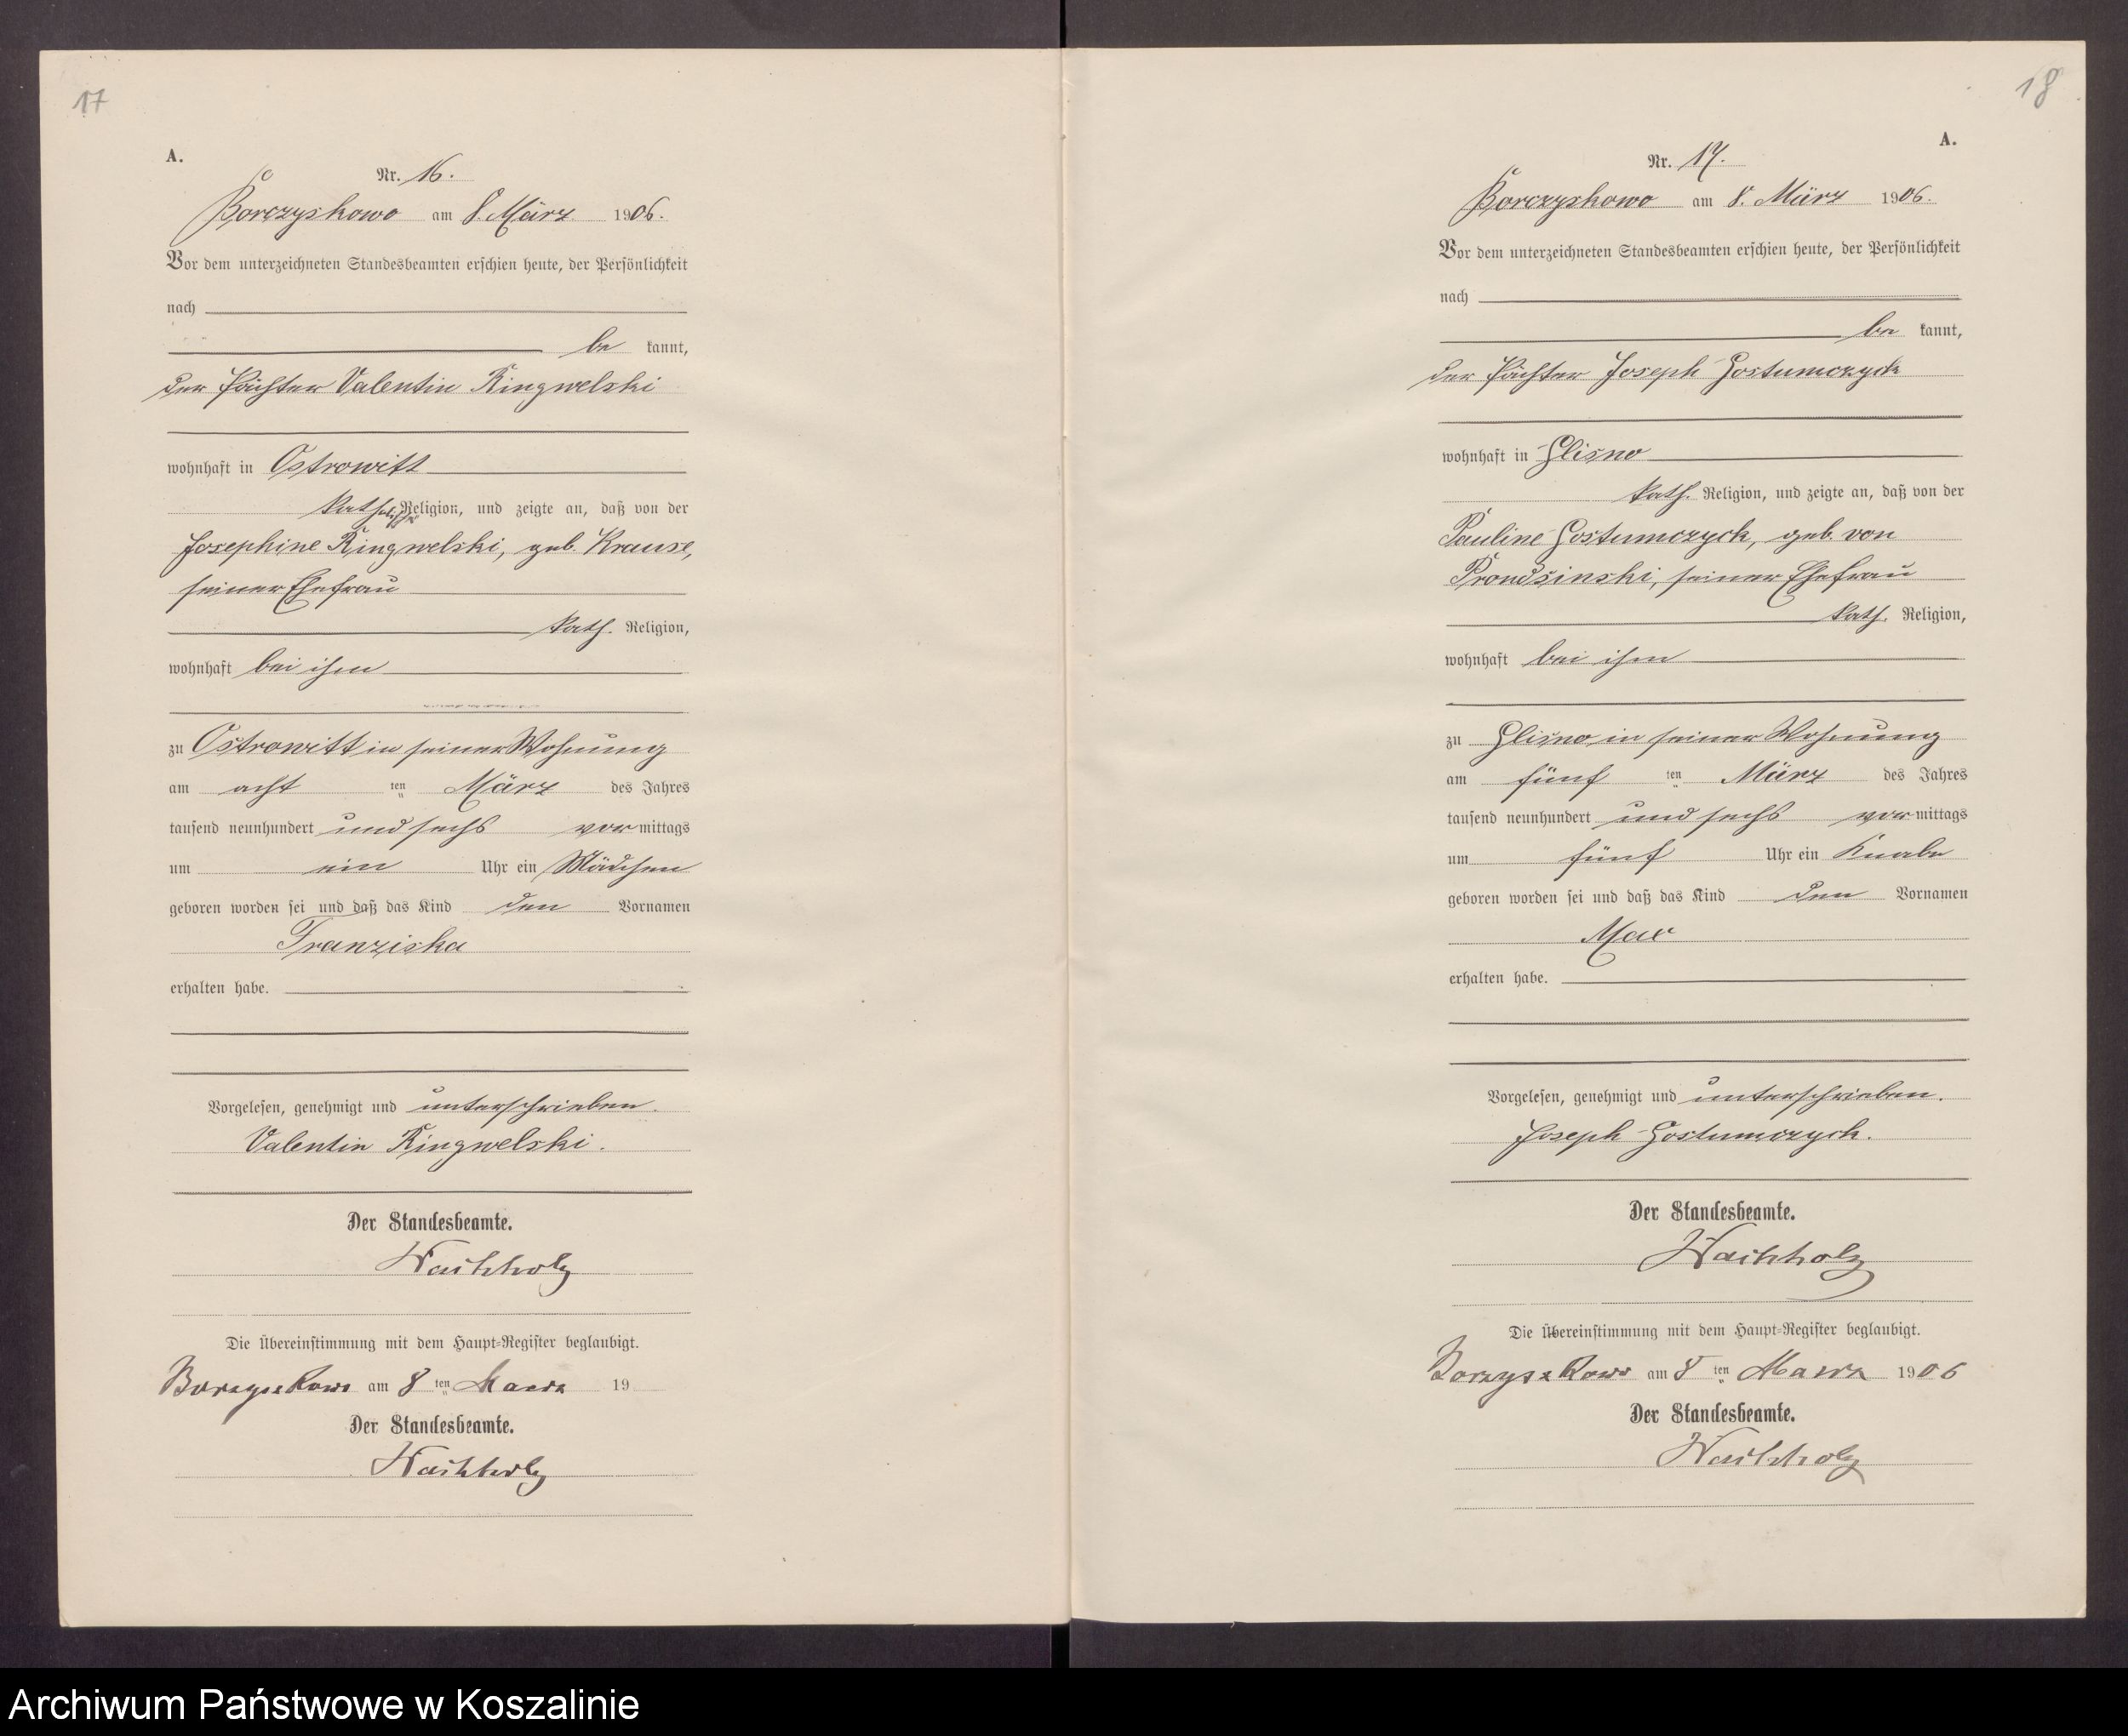 17
A.
Nr. 16.
Borczyskowo am 8. März 1906.
Vor dem unterzeichneten Standesbeamten erschien heute, der Persönlichkeit
nach
be kannt,
der Pächter Valentin Ringwelski
wohnhaft in Ostrowitt
katholischer Religion, und zeigte an, daß von der
Josephine Ringwelski, geb. Krause,
seiner Ehefrau
kath. Religion,
wohnhaft bei ihm
zu Ostrowitt in seiner Wohnung
am acht ten März des Jahres
tausend neunhundert und sechs vor mittags
um ein Uhr ein Mädchen
geboren worden sei und daß das Kind den Vornamen
Franziska
erhalten habe.
Vorgelesen, genehmigt und unterschrieben.
Valentin Ringwelski.
Der Standesbeamte.
Wachholz
Die Übereinstimmung mit dem Haupt-Register beglaubigt.
Borzyskowo am 8 ten Maerz 19
Der Standesbeamte.
Wachholz
18
A.
Nr. 17.
Borczyskowo am 8. März 1906.
Vor dem unterzeichneten Standesbeamten erschien heute, der Persönlichkeit
nach
be kannt,
der Pächter Joseph Gostumczyck
wohnhaft in Glisno
kath. Religion, und zeigte an, daß von der
Pauline Gostumczyck, geb. von
Prondzinski, seiner Ehefrau
kath. Religion,
wohnhaft bei ihm
zu Glisno in seiner Wohnung
am fünf ten März des Jahres
tausend neunhundert und sechs vor mittags
um fünf Uhr ein Knabe
geboren worden sei und daß das Kind den Vornamen
Max
erhalten habe.
Vorgelesen, genehmigt und unterschrieben.
Joseph Gostumczyck.
Der Standesbeamte.
Wachholz
Die Übereinstimmung mit dem Haupt-Register beglaubigt.
Borzyskowo am 8 ten Maerz 1906
Der Standesbeamte.
Wachholz
Archiwum Państwowe w Koszalinie